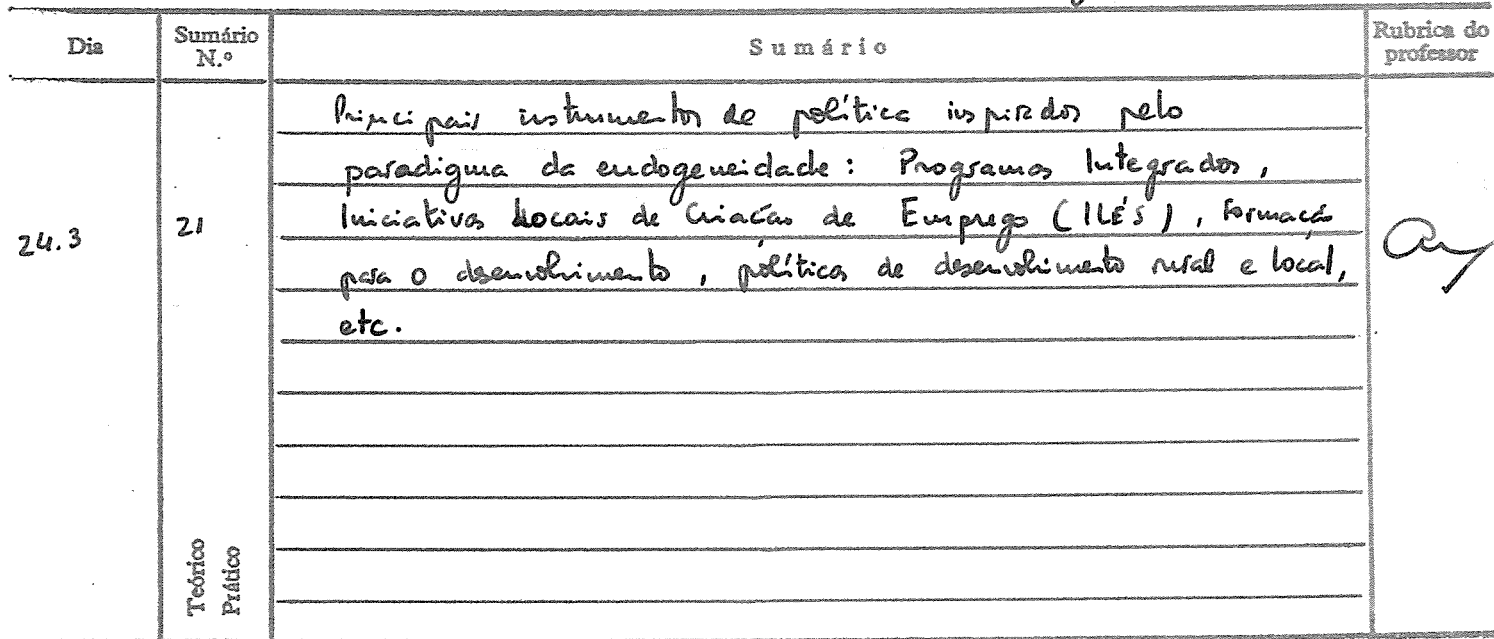 Dia
Sumário N.º
Sumário
Rubrica do professor
24.3
21
Principais instrumentos de política inspirados pelo
paradigma da endogeneidade : Programas Integrados ,
Iniciativas Locais de Criação de Emprego ( ILÉ's ) , Formação
para o desenvolvimento , políticas de desenvolvimento rural e local,
etc.
Teórico
Prático